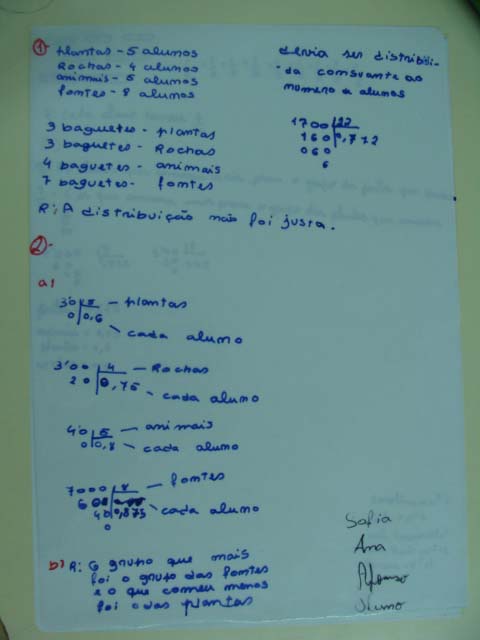 1)
plantas - 5 alunos
Rochas - 4 alunos
animais - 5 alunos
fontes - 8 alunos
devia ser distribúi-
da comsuante ao
numero d alunos
1700 | 22
160 0,772
060
6
3 baguetes - plantas
3 baguetes - Rochas
4 baguetes - animais
7 baguetes - fontes
R: A distribuição não foi justa.
2)-
a)
30 | 5 - plantas
0 0,6 - cada alumo
3'00 | 4 - Rochas
20 0,75 - cada alumo
40 | 5 - animais
0 0,8 - cada alumo
7000 | 8 - fomtes
60 0,875 - cada alumo
40
0
b) R: O grupo que mais
foi o grupo das fomtes
e o que comeu menos
foi o das plantas
Sofia
Ana
Afonso
Nuno